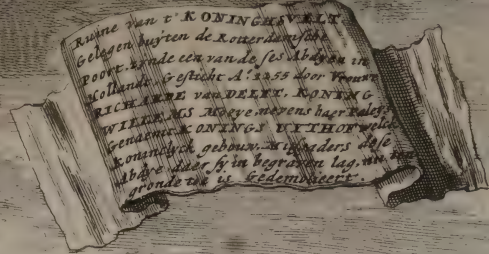 Ruine van t' KONINGHSVELT.
Gelegen buÿten de Rotterdamsche
Poort, zÿnde een van de ses Abdÿen in
Hollandt. Gesticht A.º 1255 door Vrouwe
RICHARDE van DELFT, KONING
WILLEMS Moeye, nevens haer Paleÿs
Genaemt KONINGS UYTHOF welck
Koninclÿck gebouw,
Abdÿe daer sÿ in begraven lag, nu
gronde toe is Gedemolieert.